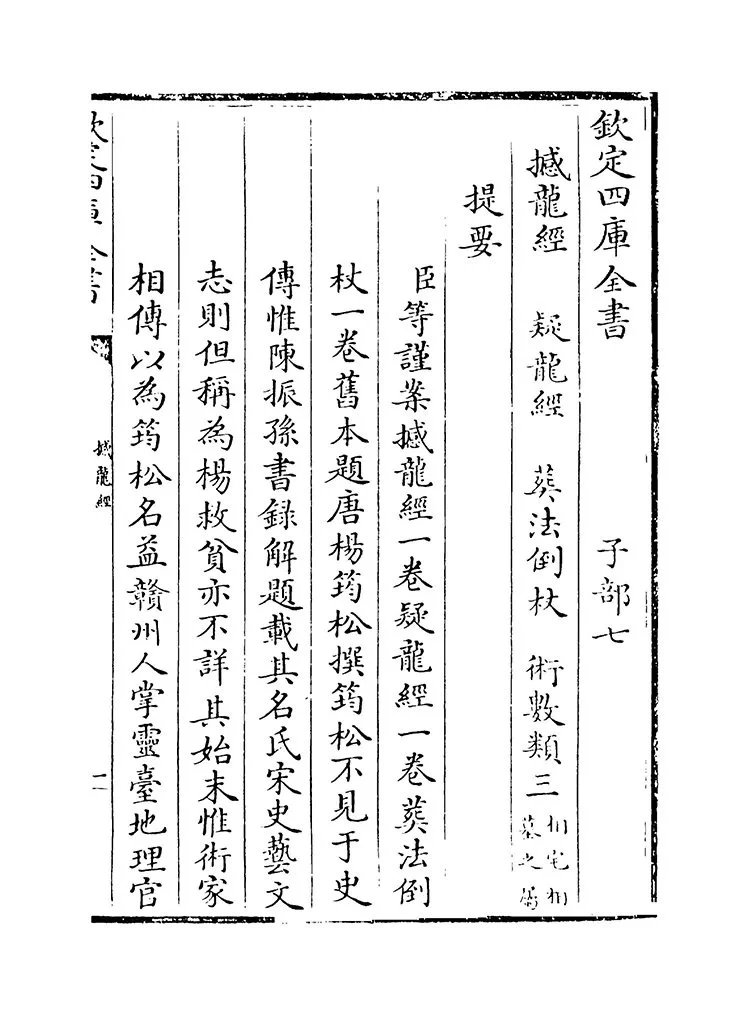 欽定四庫全書　子部七
撼龍經　疑龍經　葬法倒杖　術數類三相宅相墓之屬
提要
臣等謹案撼龍經一卷疑龍經一卷葬法倒
杖一卷舊本題唐楊筠松撰筠松不見于史
傳惟陳振孫書録解題載其名氏宋史藝文
志則但稱為楊救貧亦不詳其始末惟術家
相傳以為筠松名益贛州人掌靈臺地理官
欽定四庫全書
撼龍經
一